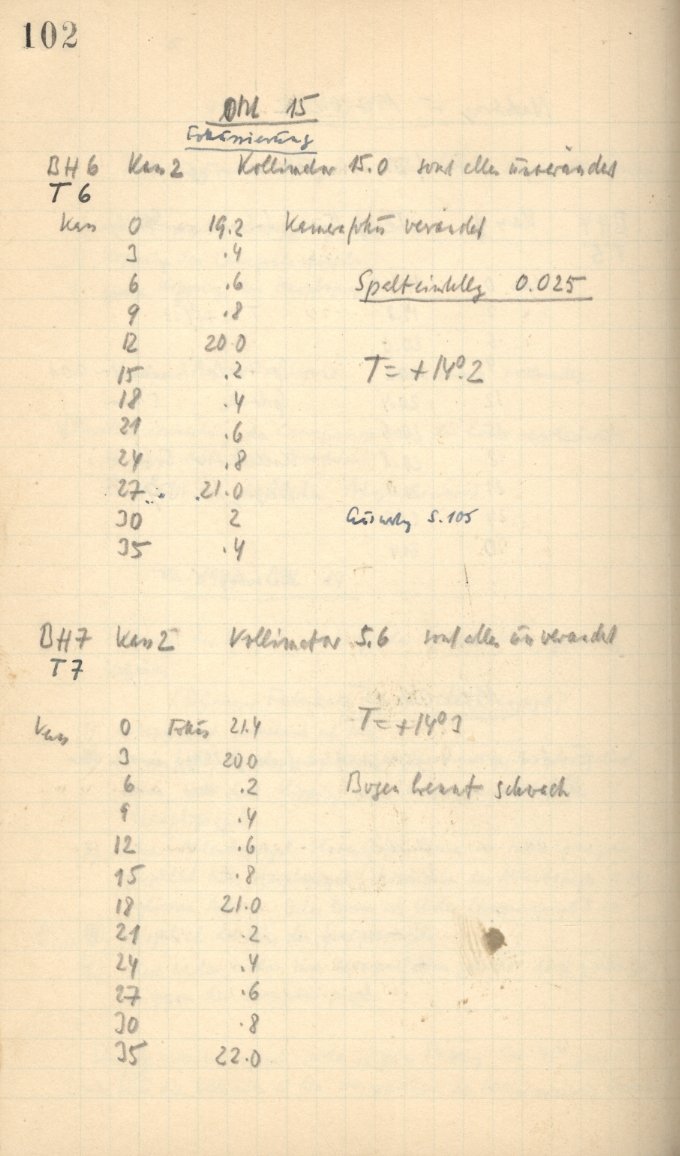 102
Okt 15
Fokussierung
BH 6 Kass 2 Kollimator 15.0 sonst alles unverändert
T 6
Kass 0 19.2 Kamerafokus verändert
3 .4
6 .6 Spalteinstellg 0.025
9 .8
12 20.0
15 .2 T = +14°.2
18 .4
21 .6
24 .8
27 21.0
30 2 S. 105
35 .4
BH 7 Kass 2 Kollimator 5.6 sonst alles unverändert
T 7
Kass 0 Fokus 21.4 T = +14°.3
3 20.0
6 .2 Bogen brennt schwach
9 .4
12 .6
15 .8
18 21.0
21 .2
24 .4
27 .6
30 .8
35 22.0